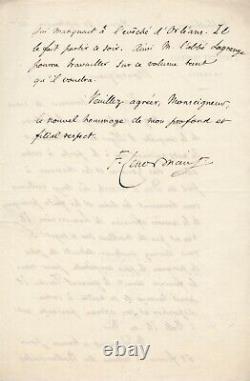 qui manquait à l'évêché d'Orléans. Et
le fait partir ce soir. Ainsi M l'abbé Lagrange
pourra travailler sur ce volume tant
qu'il voudra.
Veuillez agréer, Monseigneur,
ce nouvel hommage de mon profond et
filial respect.
© ebay